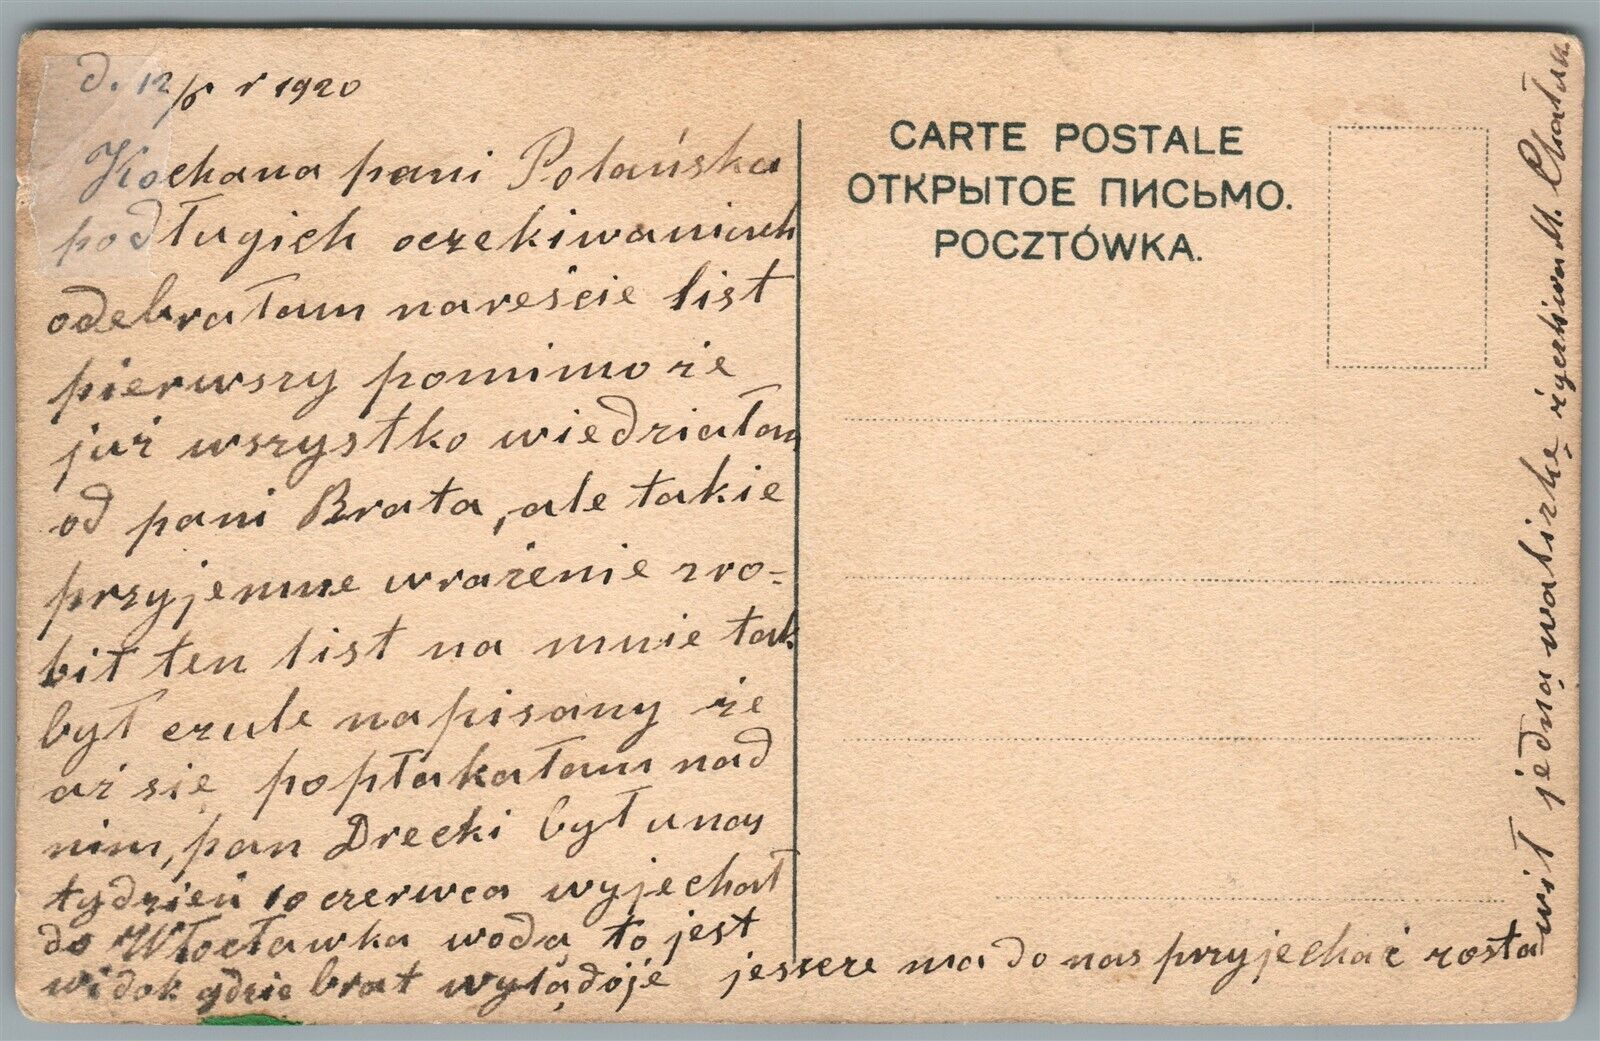 d. 12/6 r 1920
Kochana pani Polańska
po długich oczekiwaniach
odebrałam nareście list
pierwszy pomimo że
już wszystko wiedziałam
od pani Brata, ale takie
przyjemne wrażenie zro-
bił ten list na mnie tak
był czule napisany że
aż sie popłakałam nad
nim, pan Drecki był u nas
tydzień 10 czerwca wyjechał
do Włocławka wodą to jest
widok gdzie brat wylądoje
jeszcze ma do nas przyjechać zosta
wił jedną walizkę życzliwa M.
CARTE POSTALE
ОТКРЫТОЕ ПИСЬМО.
POCZTÓWKA.